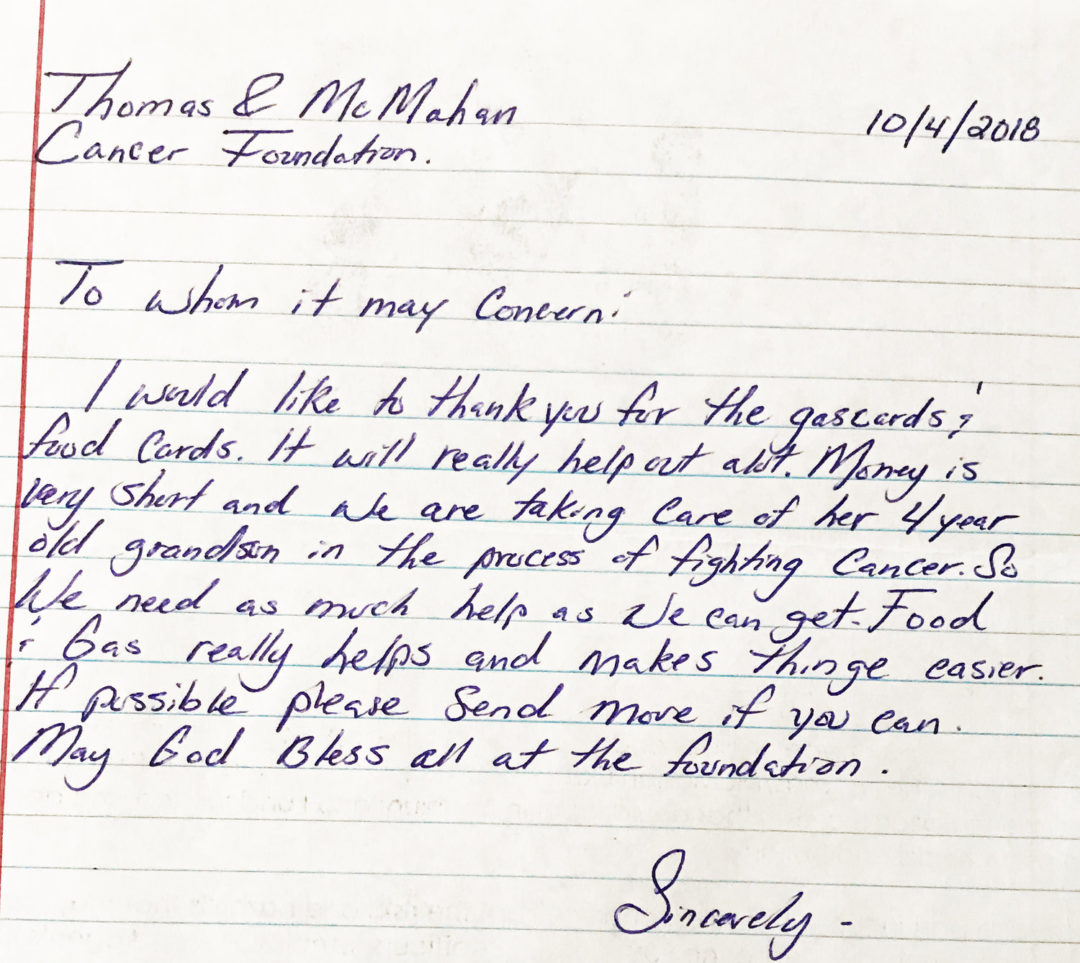 Thomas & McMahan
10/4/2018
Cancer Foundation.
To whom it may Concern:
I would like to thank you for the gascards &
food Cards. It will really help out alot. Money is
very Short and We are taking Care of her 4 year
old grandson in the process of fighting Cancer. So
We need as much help as We can get. Food
& Gas really helps and makes thinge easier.
If possible please Send more if you can.
May God Bless all at the foundation.
Sincerely -